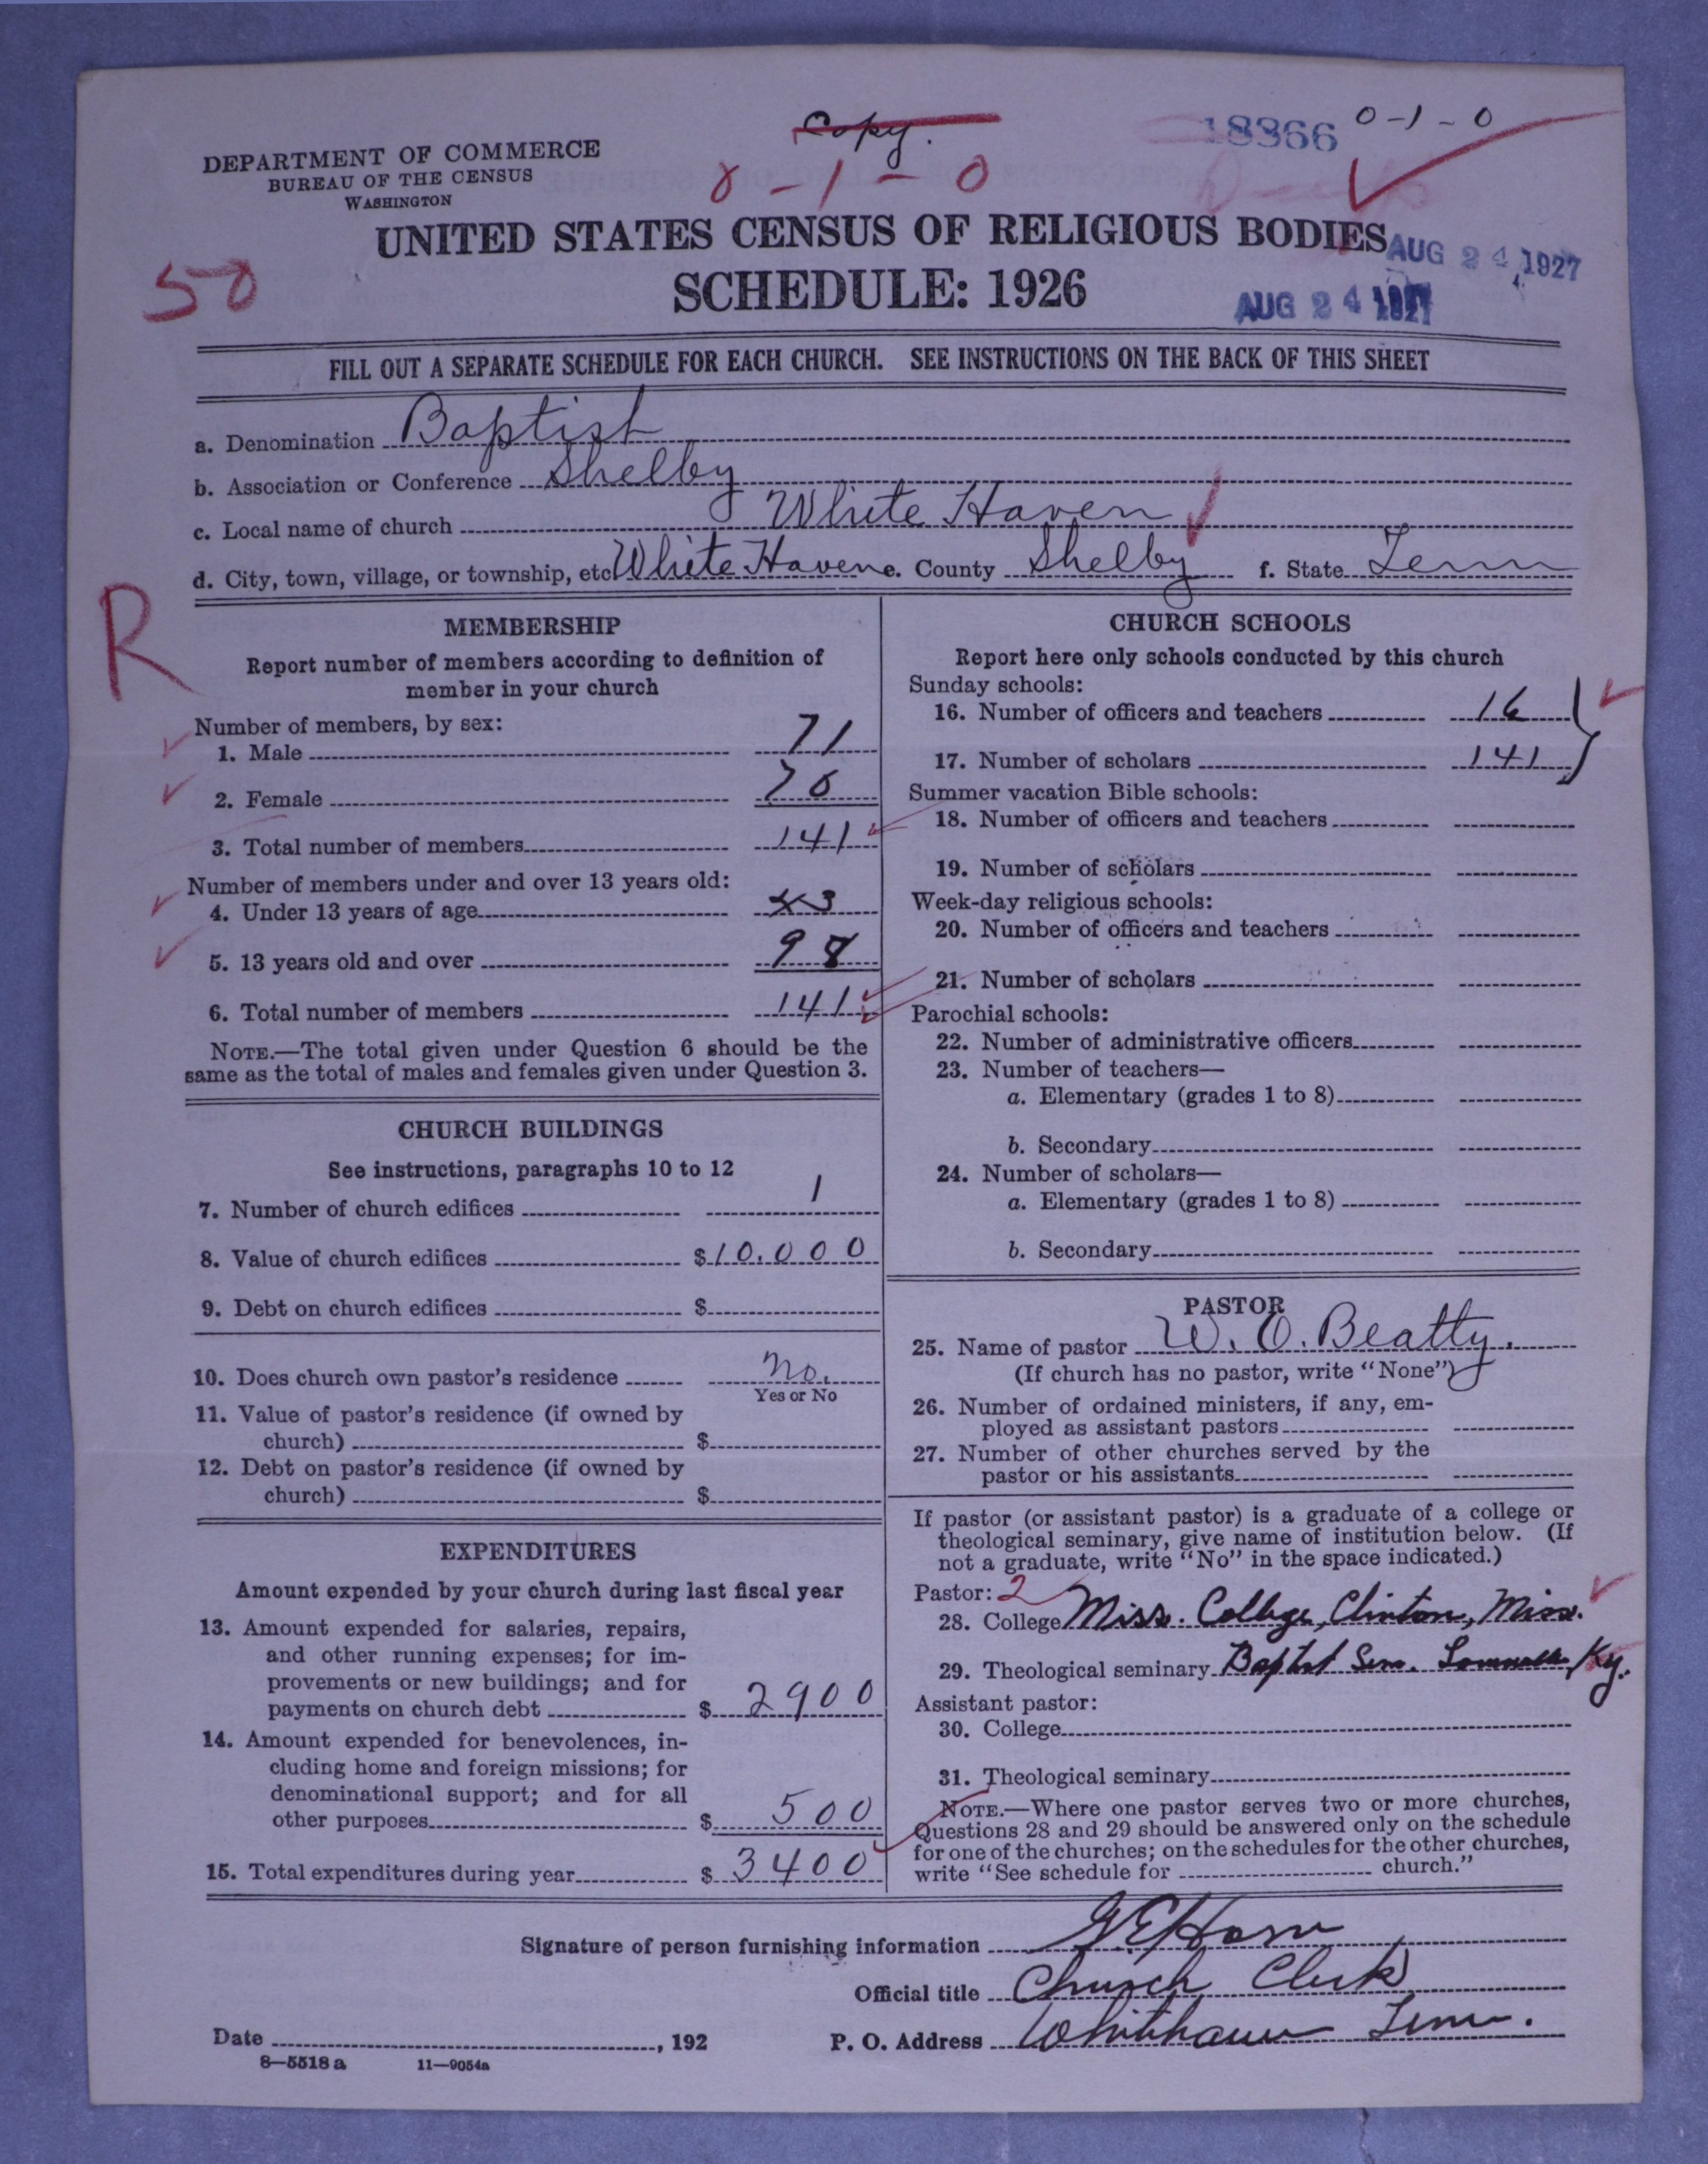 Copy.
18366
0-1-0
0-1-0
DEPARTMENT OF COMMERCE
BUREAU OF THE CENSUS
WASHINGTON
UNITED STATES CENSUS OF RELIGIOUS BODIES
AUG 24 1927
SCHEDULE: 1926
AUG 24 1927
50
FILL OUT A SEPARATE SCHEDULE FOR EACH CHURCH. SEE INSTRUCTIONS ON THE BACK OF THIS SHEET
a. Denomination Baptist
b. Association or Conference Shelby
c. Local name of church White Haven
d. City, town, village, or township, etc White Haven e. County Shelby f. State Tenn
R
MEMBERSHIP
Report number of members according to definition of
member in your church
Number of members, by sex:
1. Male 71
2. Female 70
3. Total number of members 141
Number of members under and over 13 years old:
4. Under 13 years of age 43
5. 13 years old and over 98
6. Total number of members 141
NOTE.—The total given under Question 6 should be the
same as the total of males and females given under Question 3.
CHURCH BUILDINGS
See instructions, paragraphs 10 to 12
7. Number of church edifices 1
8. Value of church edifices $10.000
9. Debt on church edifices $
10. Does church own pastor's residence no.
Yes or No
11. Value of pastor's residence (if owned by
church) $
12. Debt on pastor's residence (if owned by
church) $
EXPENDITURES
Amount expended by your church during last fiscal year
13. Amount expended for salaries, repairs,
and other running expenses; for im-
provements or new buildings; and for
payments on church debt $ 2900
14. Amount expended for benevolences, in-
cluding home and foreign missions; for
denominational support; and for all
other purposes $ 500
15. Total expenditures during year $ 3400
CHURCH SCHOOLS
Report here only schools conducted by this church
Sunday schools:
16. Number of officers and teachers 16
17. Number of scholars 141
Summer vacation Bible schools:
18. Number of officers and teachers
19. Number of scholars
Week-day religious schools:
20. Number of officers and teachers
21. Number of scholars
Parochial schools:
22. Number of administrative officers
23. Number of teachers—
a. Elementary (grades 1 to 8)
b. Secondary
24. Number of scholars—
a. Elementary (grades 1 to 8)
b. Secondary
PASTOR
25. Name of pastor W. O. Beatty.
(If church has no pastor, write "None")
26. Number of ordained ministers, if any, em-
ployed as assistant pastors
27. Number of other churches served by the
pastor or his assistants
If pastor (or assistant pastor) is a graduate of a college or
theological seminary, give name of institution below. (If
not a graduate, write "No" in the space indicated.)
Pastor: 2
28. College Miss. College, Clinton, Miss.
29. Theological seminary Baptist Sem. Louisville Ky.
Assistant pastor:
30. College
31. Theological seminary
NOTE.—Where one pastor serves two or more churches,
Questions 28 and 29 should be answered only on the schedule
for one of the churches; on the schedules for the other churches,
write "See schedule for church."
Signature of person furnishing information G E Horn
Official title Church Clerk
Date , 192 P. O. Address Whitehaven Tenn.
8—5518 a 11—9054a